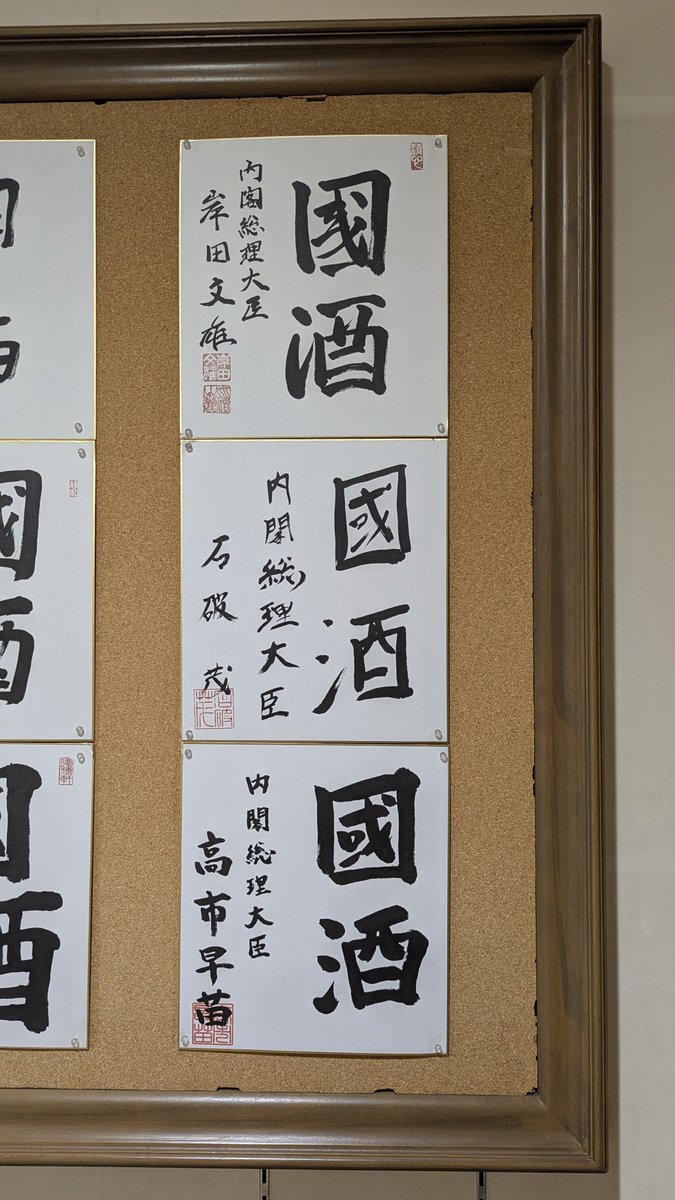 國酒
内閣総理大臣
岸田文雄
國酒
内閣総理大臣
石破茂
國酒
内閣総理大臣
高市早苗
國酒